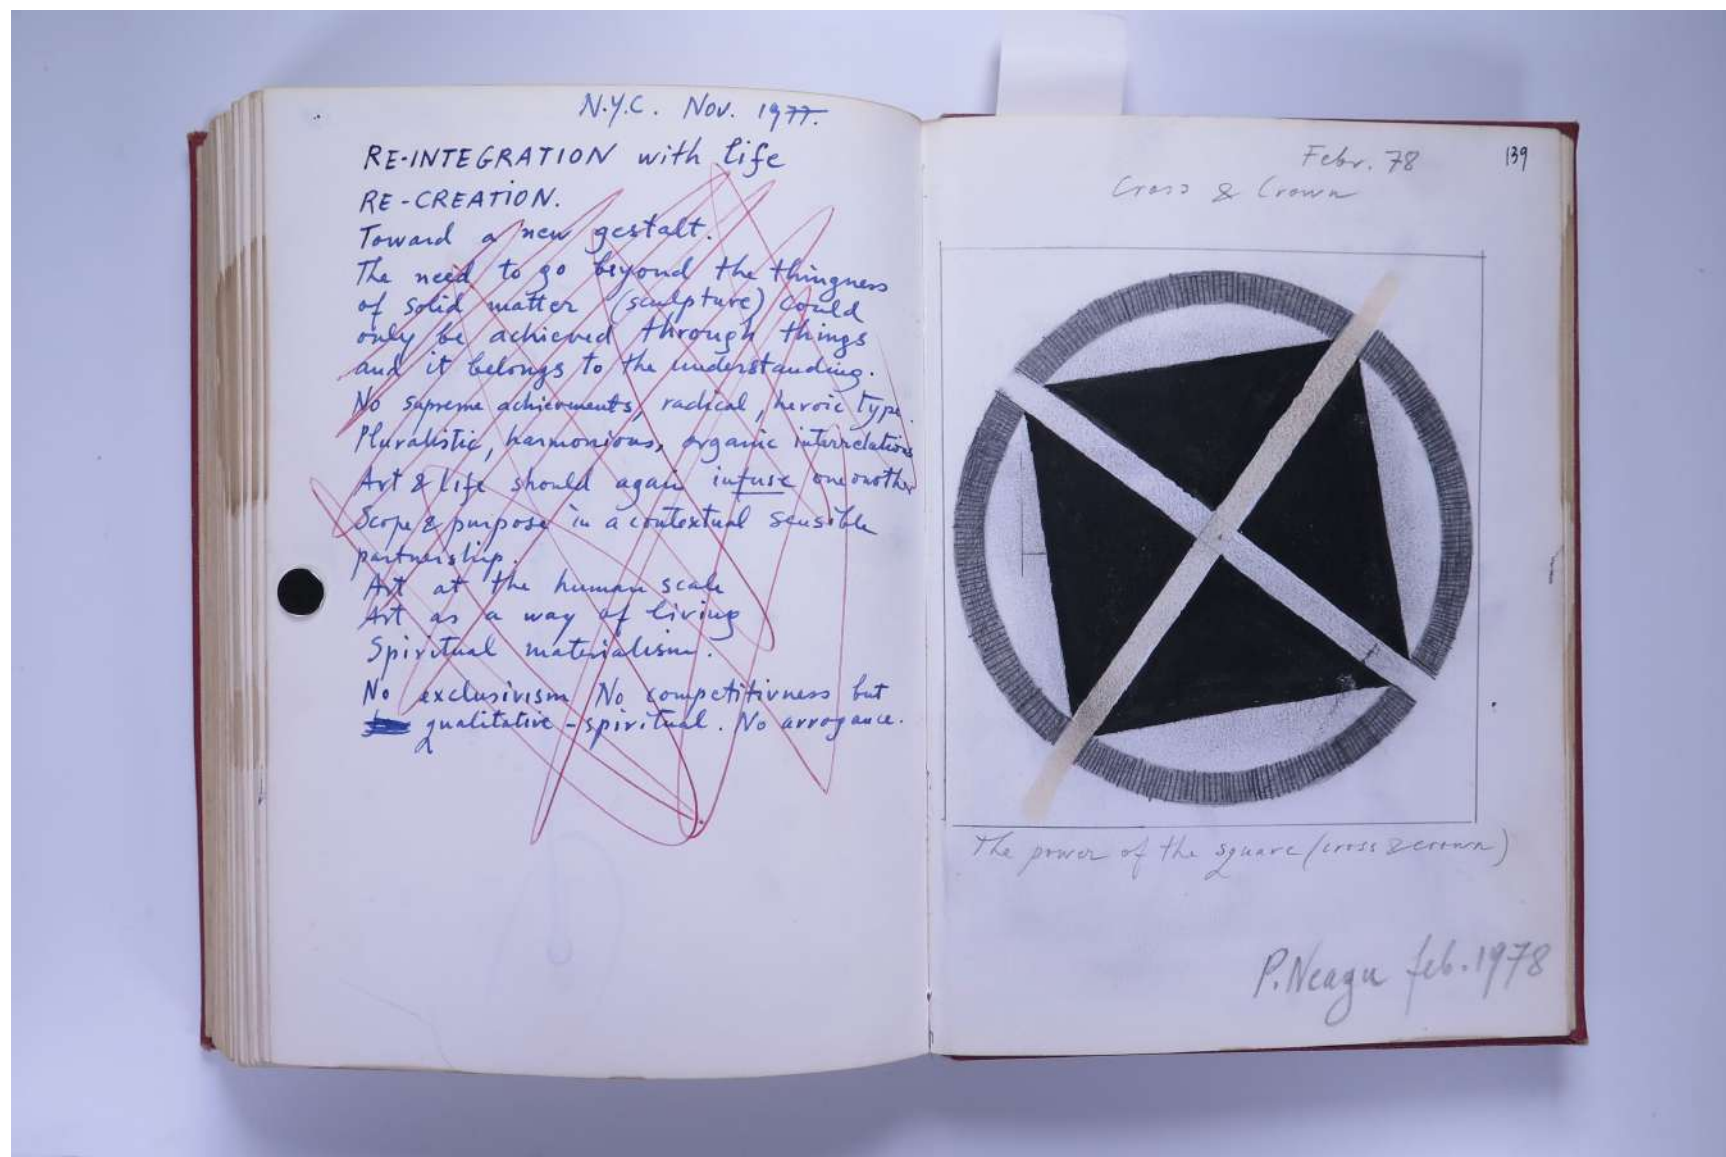 N.Y.C. Nov. 1977.
RE-INTEGRATION with life
RE-CREATION.
Toward a new gestalt.
The need to go beyond the thingness
of solid matter (sculpture) could
only be achieved through things
and it belongs to the understanding.
No supreme achievements, radical, heroic type.
Pluralistic, harmonious, organic interrelations
Art & life should again infuse oneonother
Scope & purpose in a contextual sensible
partnership.
Art at the human scale
Art as a way of living
Spiritual materialism.
No exclusivism, No competitivness but
qualitative - spiritual. No arrogance.
Febr. 78
139
Cross & Crown
The power of the square (cross & crown)
P. Neagu feb. 1978